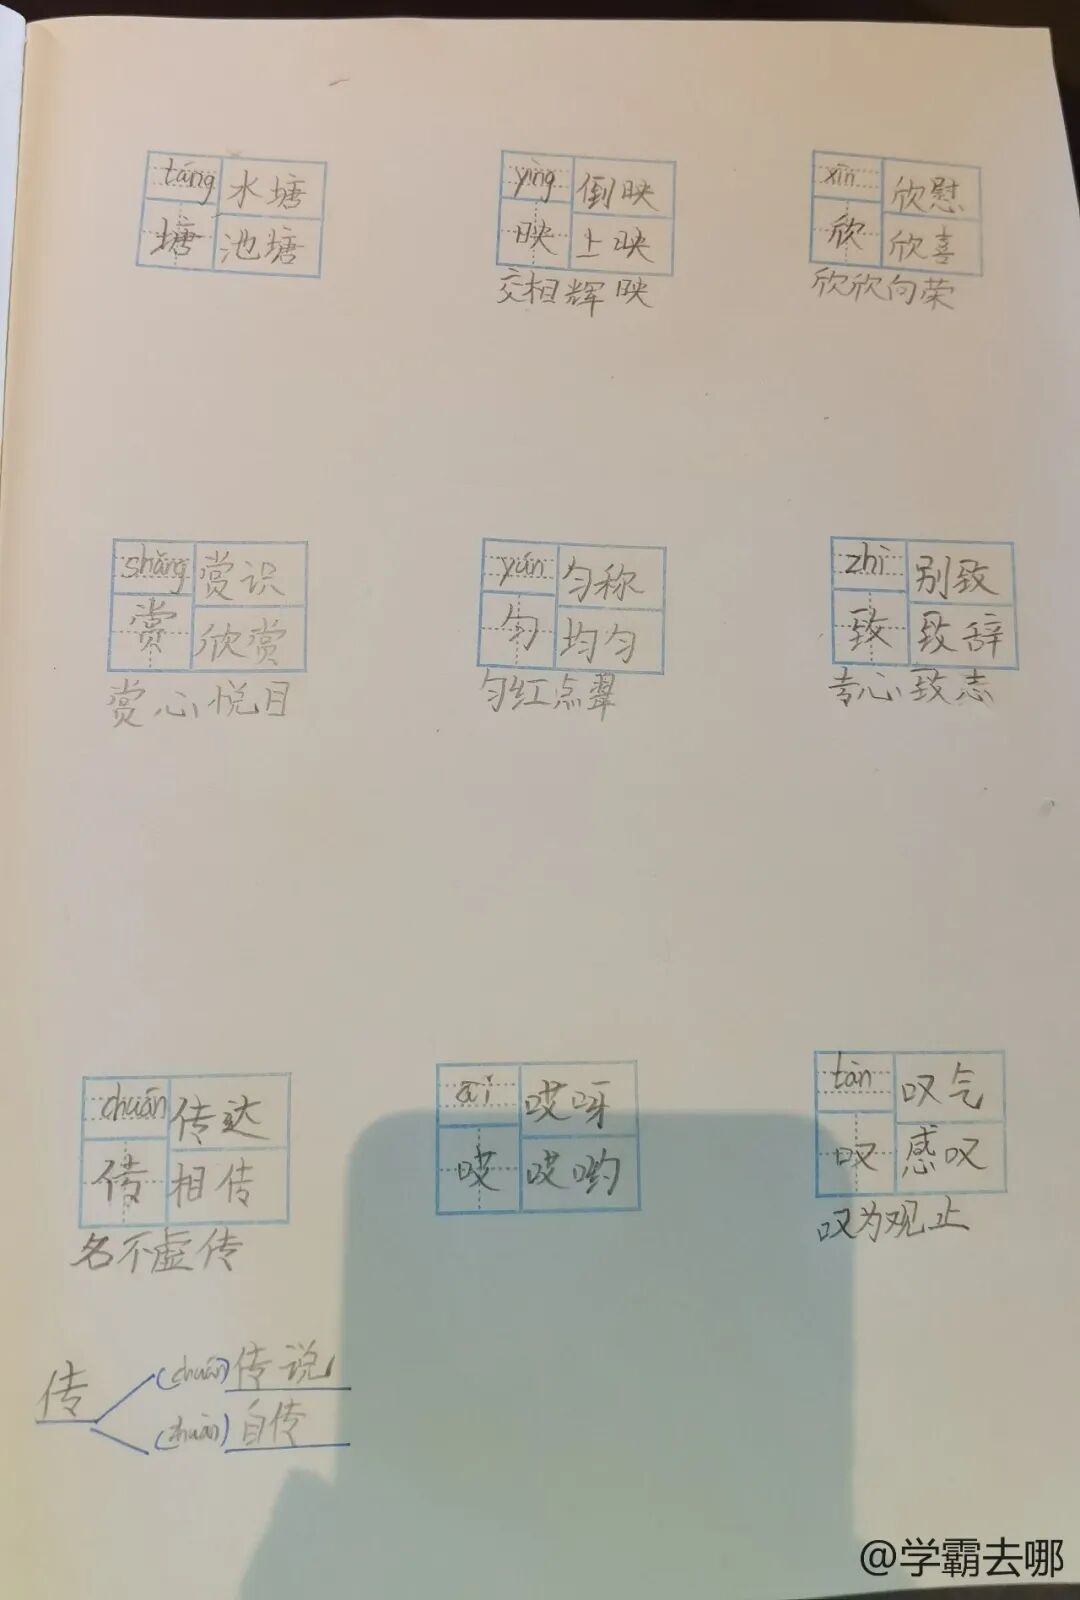 táng 水塘
塘 池塘
yìng 倒映
映 上映
交相辉映
xīn 欣慰
欣 欣喜
欣欣向荣
shǎng 赏识
赏 欣赏
赏心悦目
yún 匀称
匀 均匀
匀红点翠
zhì 别致
致 致辞
专心致志
chuán 传达
传 相传
名不虚传
āi 哎呀
哎 哎哟
tàn 叹气
叹 感叹
叹为观止
传
(chuán) 传说
(zhuàn) 自传
@学霸去哪